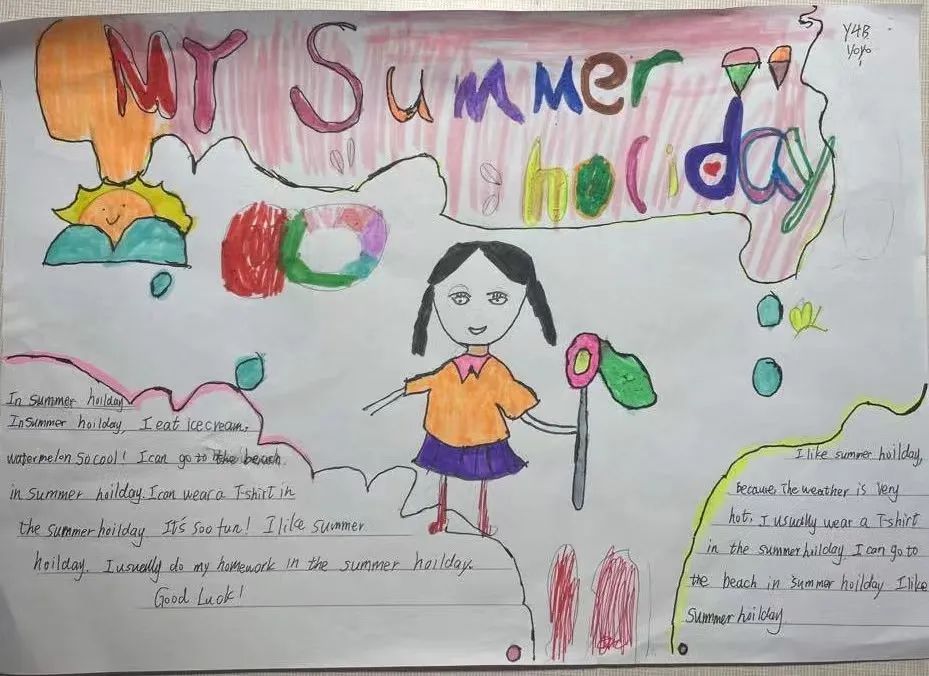 MY Summer
holiday
Y4B
Yoyo
In summer hoilday
In summer hoilday, I eat ice cream,
watermelon so cool! I can go to the beach
in summer hoilday. I can wear a T-shirt in
the summer hoilday It's soo fun! I like summer
hoilday. I usually do my homework in the summer hoilday.
Good Luck!
I like summer hoilday,
because, the weather is very
hot, I usually wear a T-shirt
in the summer hoilday I can go to
the beach in summer hoilday I like
summer hoilday